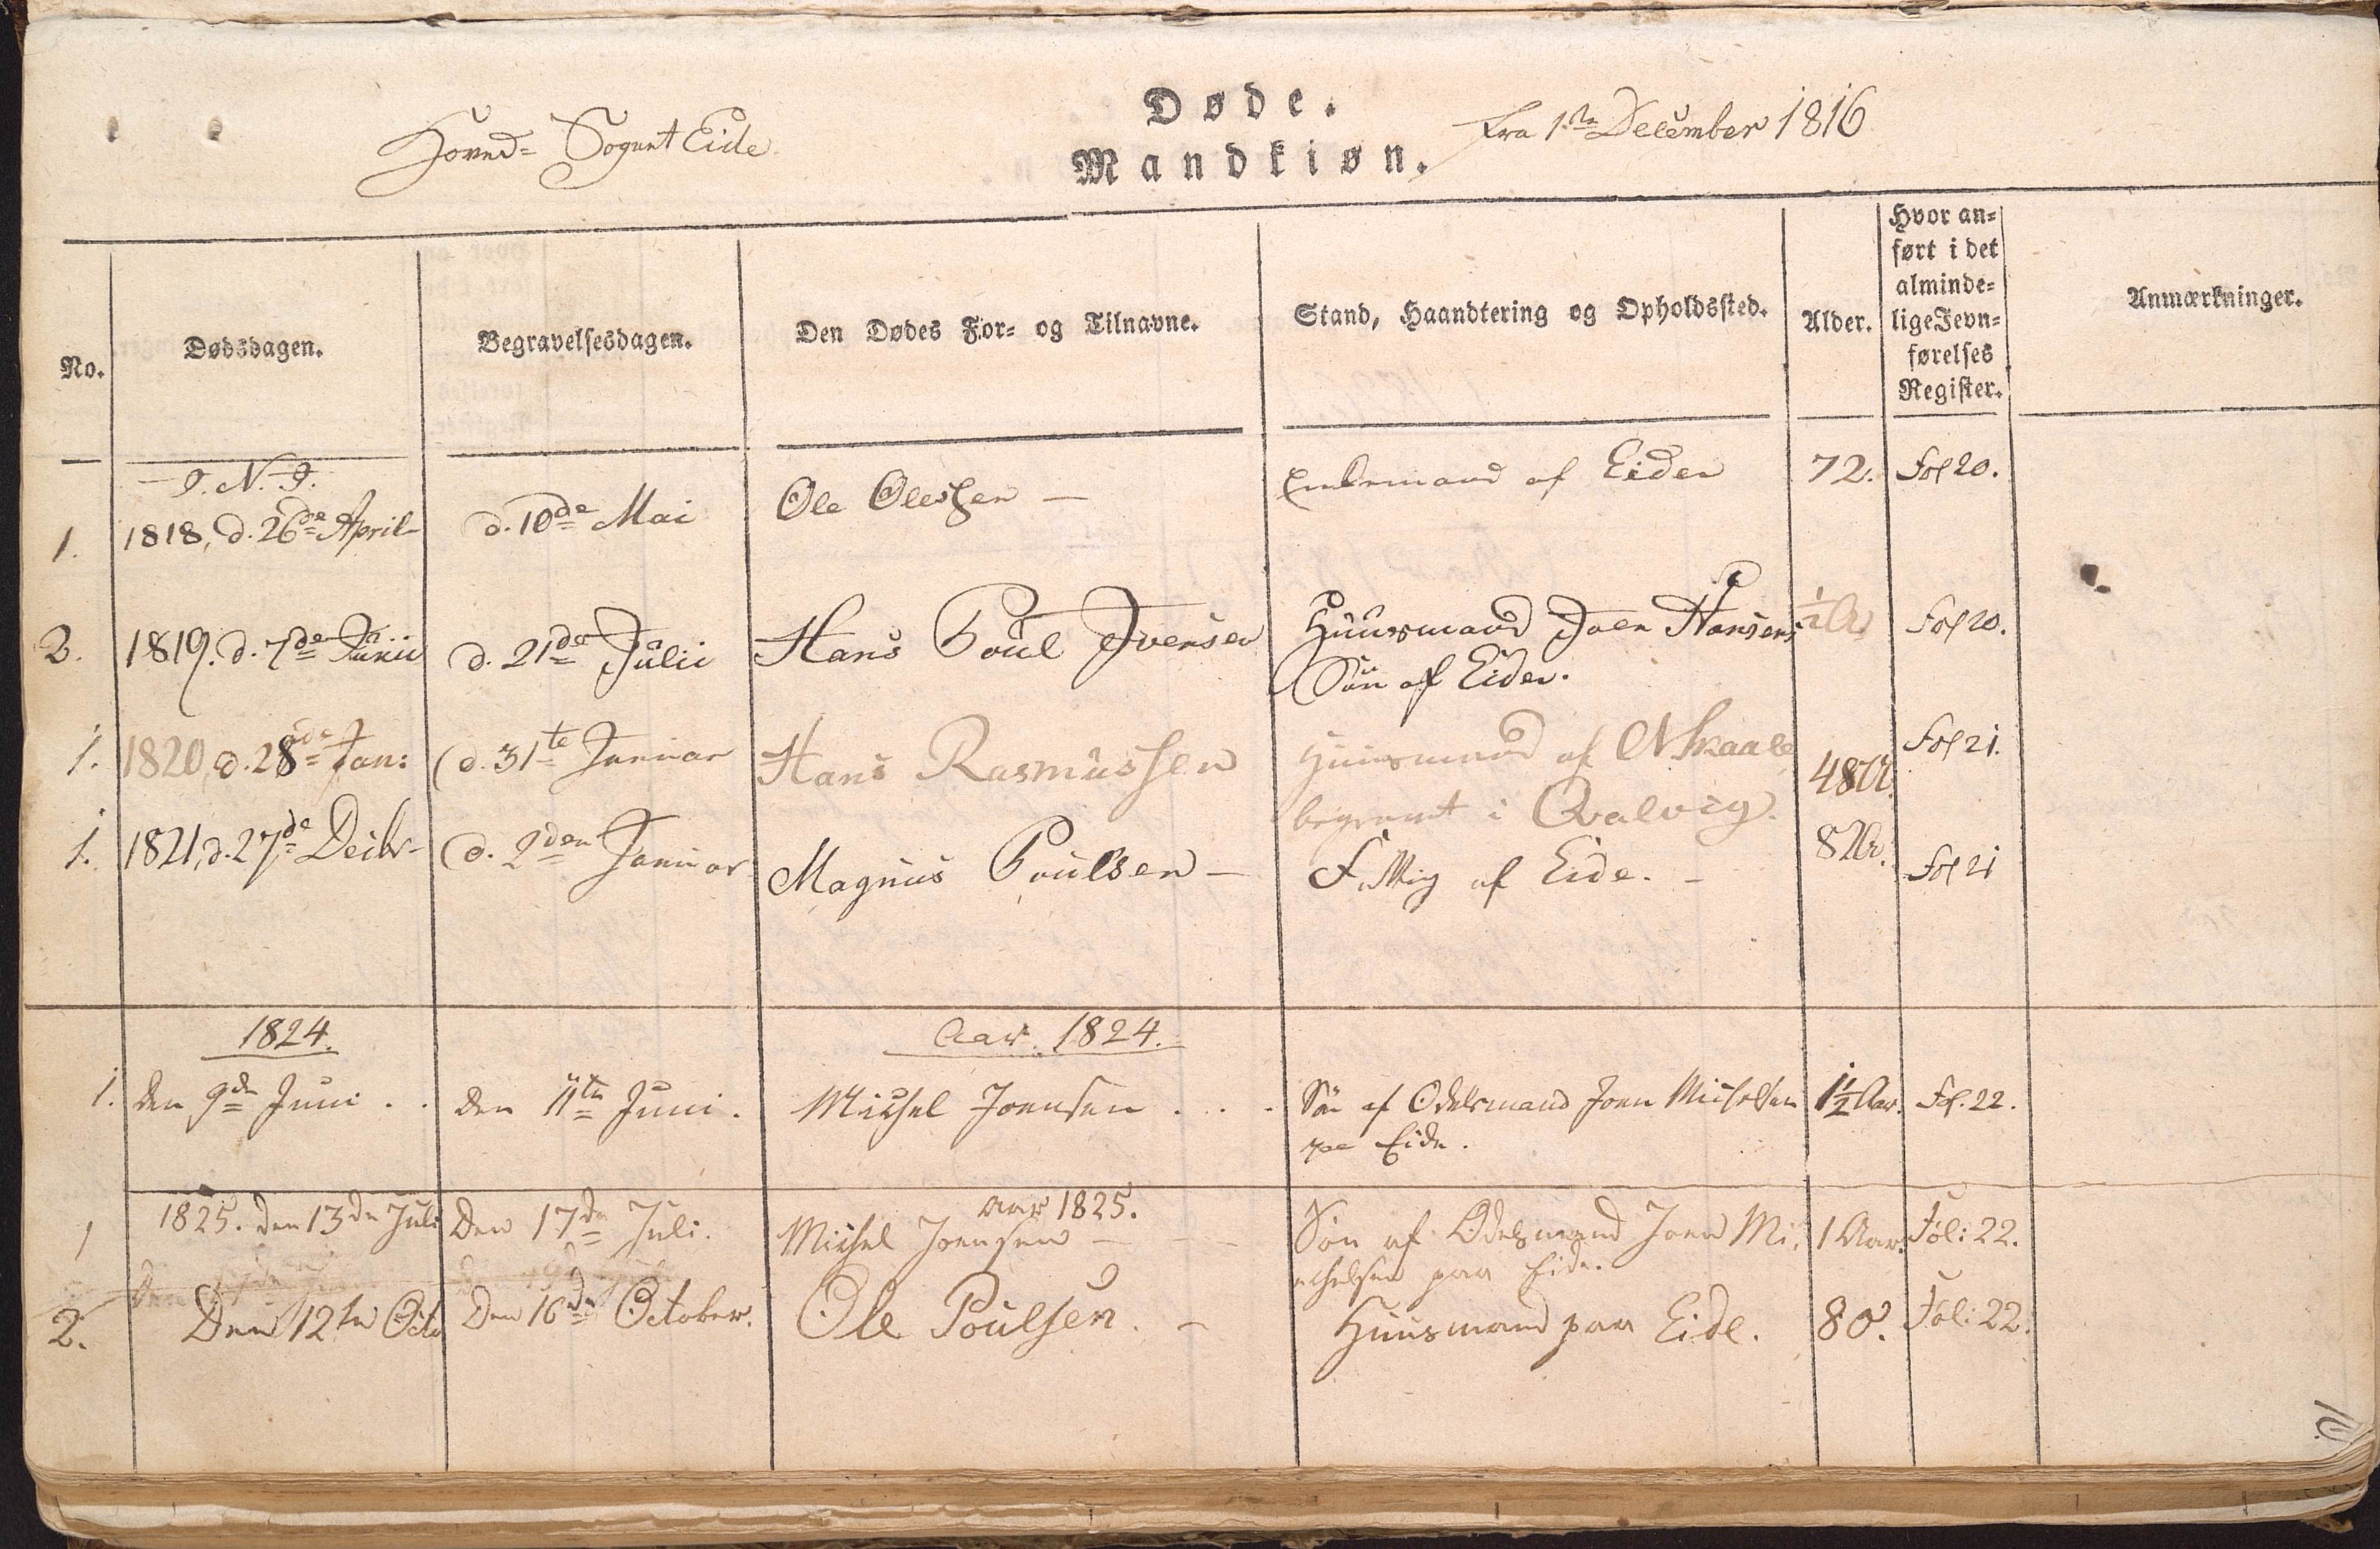 Døde.
Hoved= Sognet Eide
Fra 1ste December 1816
Mandkiøn.
No.
Dødsdagen.
Begravelsesdagen.
Den Dødes For= og Tilnavne.
Stand, Haandtering og Opholdssted.
Alder.
Hvor an=
ført i det
alminde=
lige Jevn=
førelses
Register.
Anmærkninger.
I. N. I.
1. 1818, d. 26de April d. 10de Mai Ole Olessen — Enkemand af Eide 72. Fol 20.
2. 1819. d. 7de Junii d. 21de Julii Hans Poul Iversen Huusmand Joen Hansens ½ A. Fol 20.
Søn af Eide.
1. 1820, d. 28de Jan: d. 31te Januar Hans Rasmussen Huusmand af Nskaale 48 A. Fol 21.
begravet i Qvalvig.
1. 1821, d. 27de Decbr d. 2den Januar Magnus Poulsen — Fattig af Eide. — 82 Fol 21
1824. Aar 1824.
1. den 9de Juni . . den 11te Juni. Michel Joensen . . . Søn af Odelsmand Joen Michelsen 1½ Aar. Fol. 22.
paa Eide.
Aar 1825.
1 1825. den 13de Juli Den 17de Juli. Michel Joensen — Søn af Odelsmand Joen Mi= 1 Aar. Fol: 22.
chelsen paa Eide.
2. Den 12te Octo Den 16de October. Ole Poulsen. — Huusmand paa Eide. 80. Fol: 22.